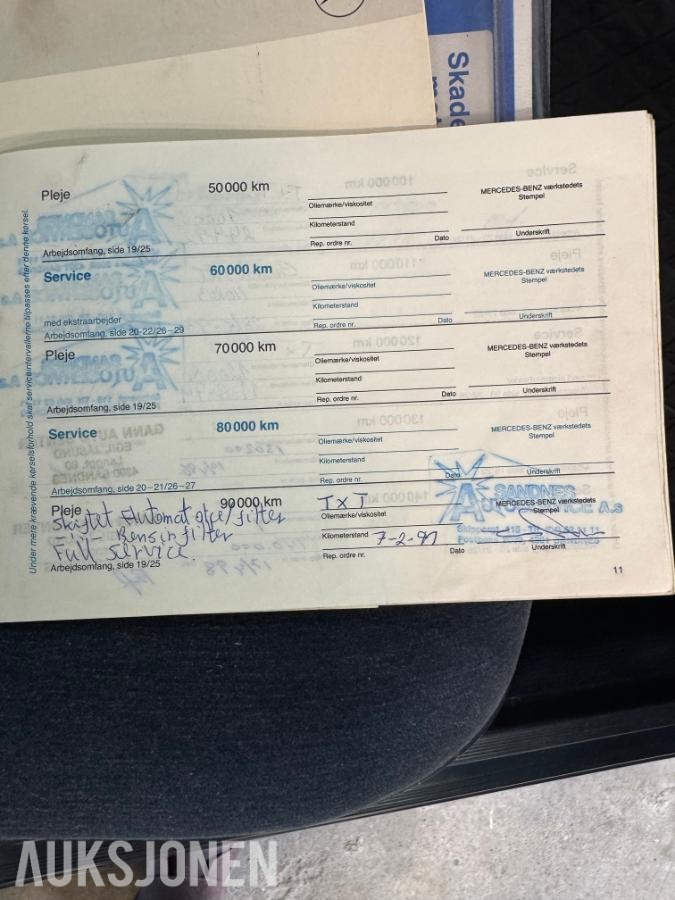 Skade
Pleje 50 000 km
Oliemærke/viskositet
Kilometerstand
Rep. ordre nr. Dato
MERCEDES-BENZ værkstedets
Stempel
Underskrift
Arbejdsomfang, side 19/25
Service 60 000 km
med ekstraarbejder
Oliemærke/viskositet
Kilometerstand
Rep. ordre nr. Dato
MERCEDES-BENZ værkstedets
Stempel
Underskrift
Arbejdsomfang, side 20-22/26-29
Pleje 70 000 km
Oliemærke/viskositet
Kilometerstand
Rep. ordre nr. Dato
MERCEDES-BENZ værkstedets
Stempel
Underskrift
Arbejdsomfang, side 19/25
Service 80 000 km
Oliemærke/viskositet
Kilometerstand
Rep. ordre nr. Dato
MERCEDES-BENZ værkstedets
Stempel
Underskrift
Arbejdsomfang, side 20-21/26-27
Pleje 90 000 km
Skiftet Automat olje/filter
Bensinfilter
Full service
TXT
Oliemærke/viskositet
Kilometerstand 7-2-97
Rep. ordre nr. Dato
MERCEDES-BENZ værkstedets
Stempel
Underskrift
SANDNES
A.S
Arbejdsomfang, side 19/25
11
Under mere krævende kørselsforhold skal serviceintervallerne tilpasses efter denne kørsel.
AUKSJONEN